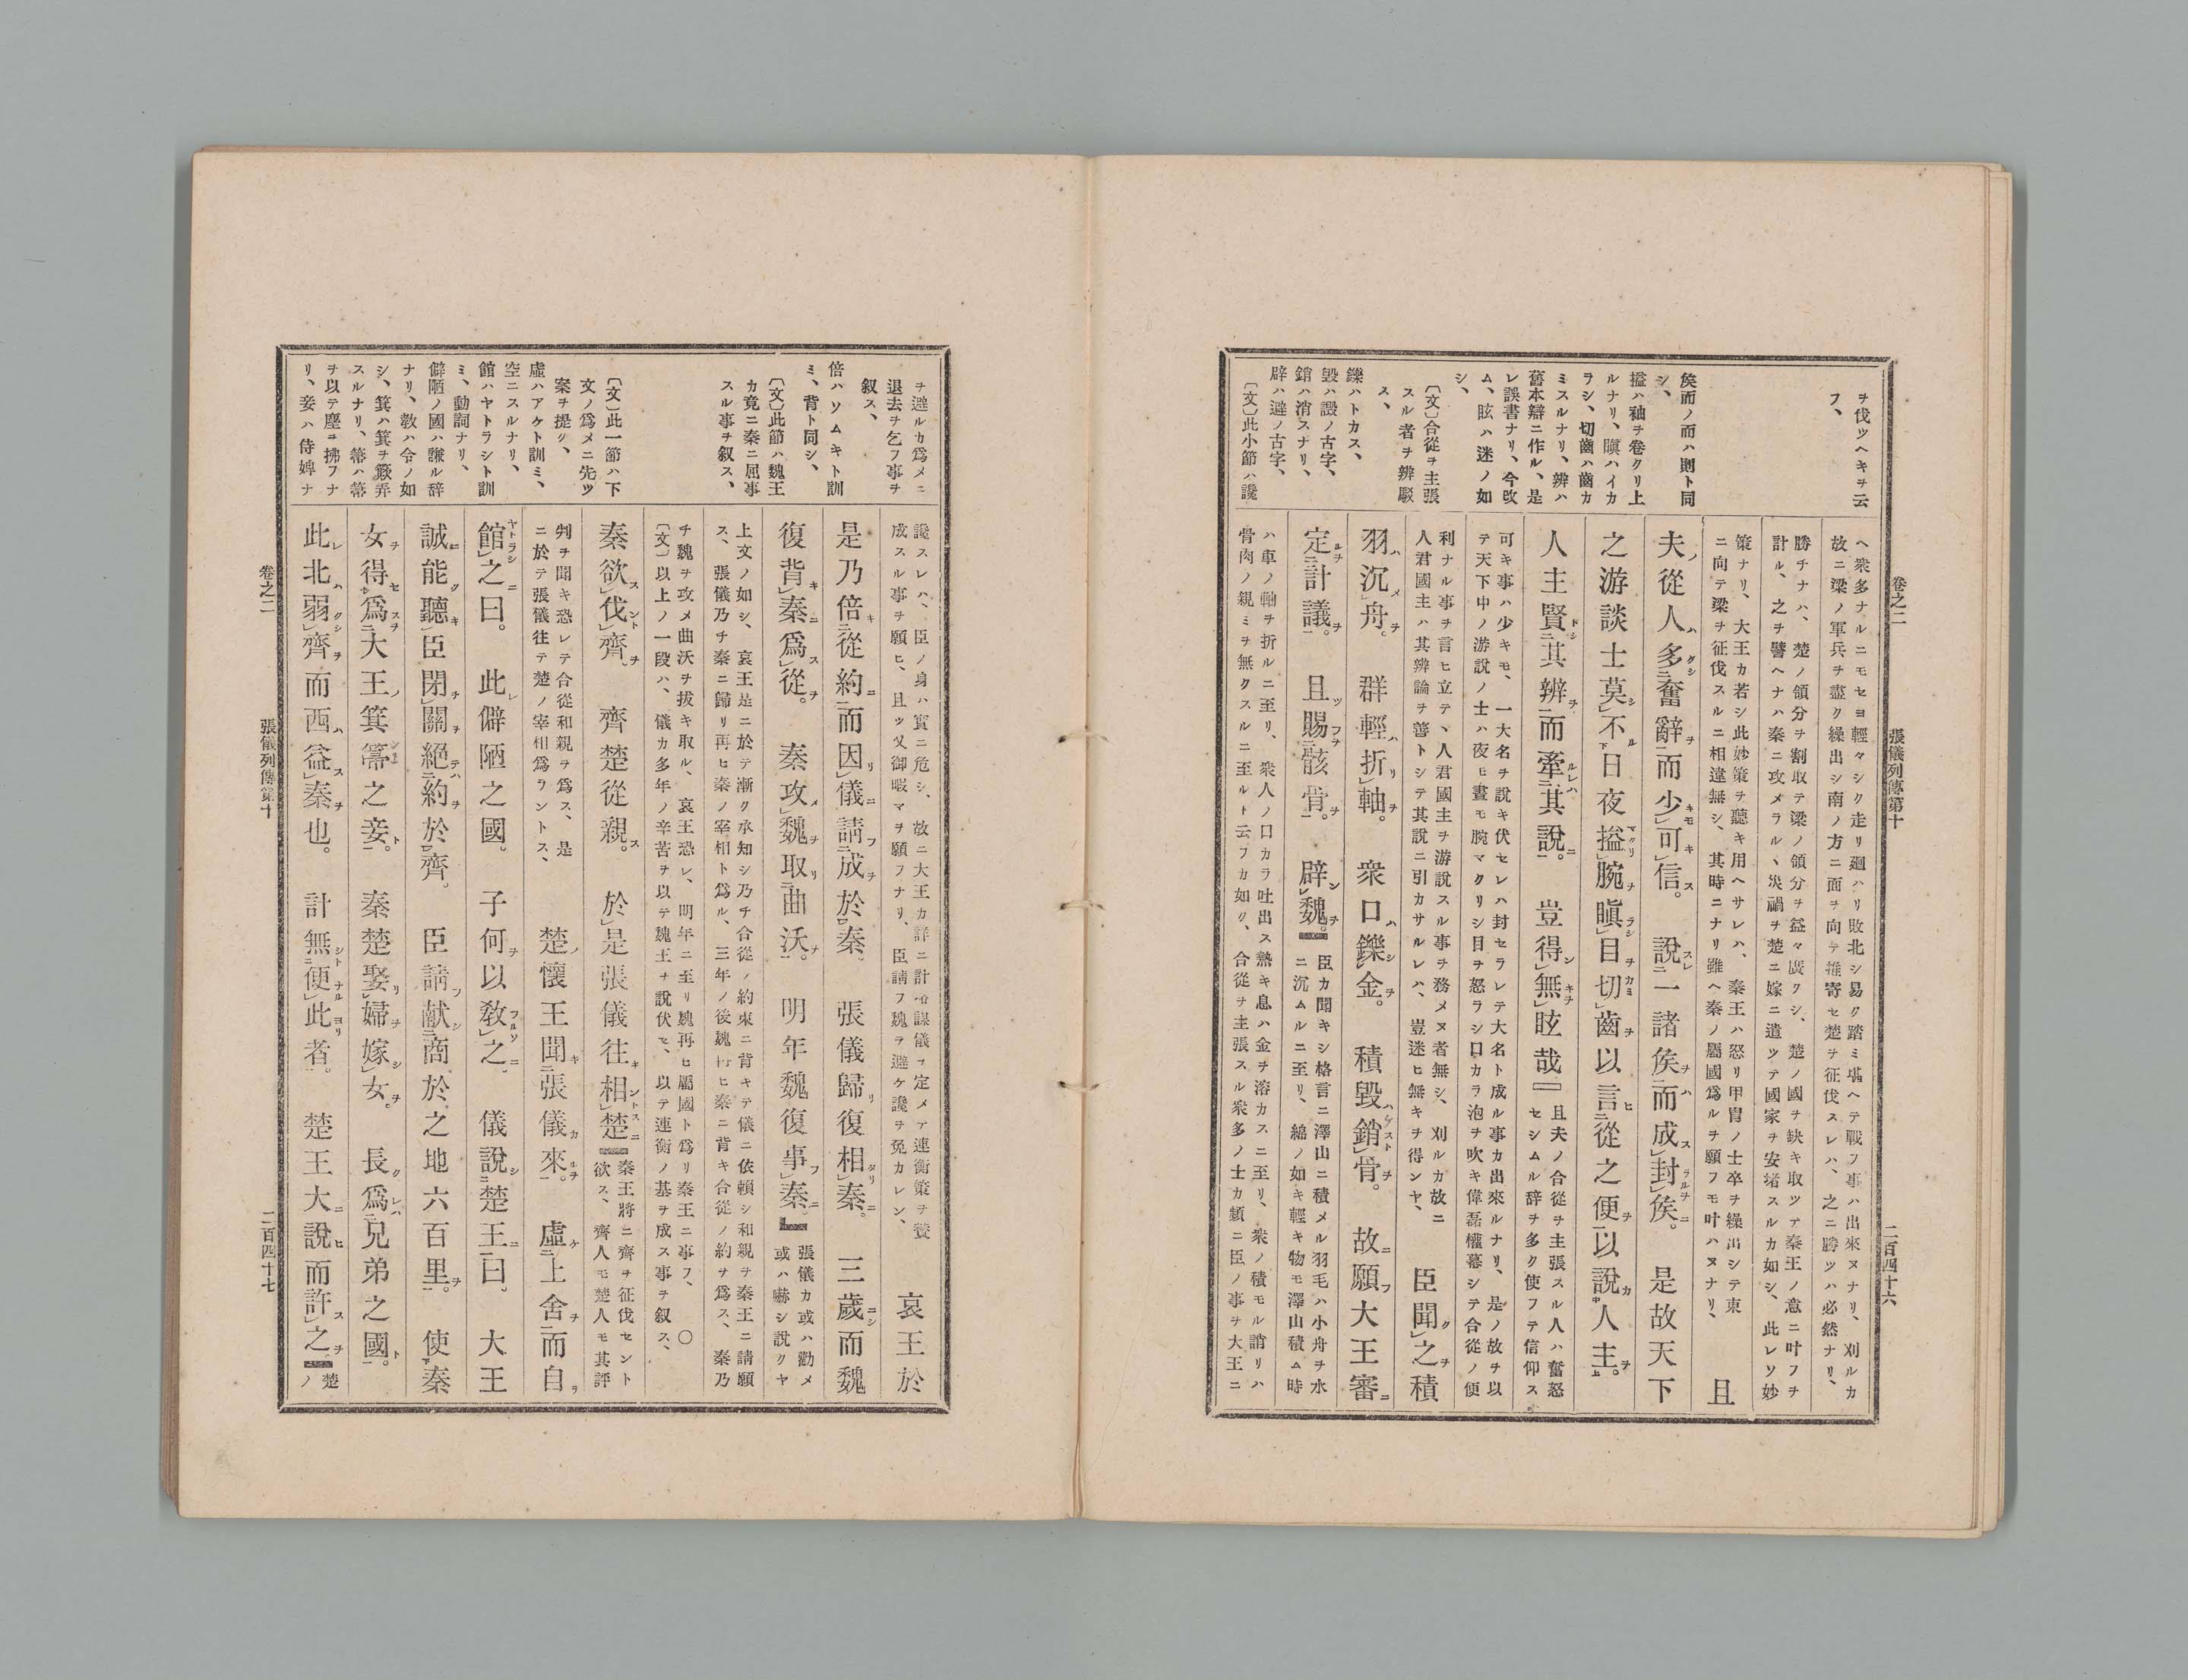 卷之二
張儀列傳第十
二百四十六
ヲ伐ツヘキヲ云
フ、
矦而ノ而ハ則ト同
シ、
搤ハ袖ヲ卷クリ上
ルナリ、瞋ハイカ
ラシ、切齒ハ齒カ
ミスルナリ、辨ハ
舊本辯ニ作ル、是
レ誤書ナリ、今改
ム、眩ハ迷ノ如
シ、
〔文〕合從ヲ主張
スル者ヲ辨駁
ス、
鑠ハトカス、
毀ハ譭ノ古字、
銷ハ消スナリ、
辟ハ避ノ古字、
〔文〕此小節ハ讒
ヘ衆多ナルニモセヨ輕々シク走リ廻ハリ敗北シ易ク踏ミ堪ヘテ戰フ事ハ出來ヌナリ、刈ルカ
故ニ梁ノ軍兵ヲ盡ク繰出シ南ノ方ニ面ヲ向テ推寄セ楚ヲ征伐スレハ、之ニ勝ツハ必然ナリ、
勝チナハ、楚ノ領分ヲ割取テ梁ノ領分ヲ益々廣クシ、楚ノ國ヲ缺キ取ツテ秦王ノ意ニ叶フヲ
計ル、之ヲ譬ヘナハ秦ニ攻メラル丶災禍ヲ楚ニ嫁ニ遣ツテ國家ヲ安堵スルカ如シ、此レソ妙
策ナリ、大王カ若シ此妙策ヲ聽キ用ヘサレハ、秦王ハ怒リ甲冑ノ士卒ヲ繰出シテ東
ニ向テ梁ヲ征伐スルニ相違無シ、其時ニナリ雖ヘ秦ノ屬國爲ルヲ願フモ叶ハヌナリ、
且
夫ノ從人ハ多クシ二奮辭ヲ一而少キモレ可キレ信ス。說スレ二一諸矦ヲハ一而成スレ封ラルヲレ矦ニ。是故天下
之游談士莫シレ不ル下日夜搤マクリレ腕ヲ瞋ラシレ目ヲ切カミレ齒ヲ以言ヒ二從之便ヲ一以說カ中人主ヲ上。
人主賢トシ二其辨ヲ一而牽ルレハ二其說ニ一。豈得ンレ無キヲレ眩哉
且夫ノ合從ヲ主張スル人ハ奮怒
セシムル辞ヲ多ク使フテ信仰ス
可キ事ハ少キモ、一大名ヲ說キ伏セレハ封セラレテ大名ト成ル事カ出來ルナリ、是ノ故ヲ以
テ天下中ノ游說ノ士ハ夜モ晝モ腕マクリシ目ヲ怒ラシ口カラ泡ヲ吹キ偉磊權幕シテ合從ノ便
利ナル事ヲ言ヒ立テ丶人君國主ヲ游說スル事ヲ務メヌ者無シ、刈ルカ故ニ
人君國主ハ其辨論ヲ善トシテ其說ニ引カサルレハ、豈迷ヒ無キヲ得ンヤ、
臣聞クレ之ヲ積
羽ハ沉メレ舟ヲ。群輕ハ折リレ軸ヲ。衆口ハ鑠シレ金ヲ。積毀ハ銷ケストレ骨ヲ。故ニ願フ大王審ニ
定ルヲ二計議ヲ一。且ツ賜フヲ二骸骨ヲ一。辟ンレ魏ヲ。
臣カ聞キシ格言ニ澤山ニ積メル羽毛ハ小舟ヲ水
ニ沉ムルニ至リ、綿ノ如キ輕キ物モ澤山積ム時
ハ車ノ軸ヲ折ルニ至リ、衆人ノ口カラ吐出ス熱キ息ハ金ヲ溶カスニ至リ、衆ノ積モル誚リハ
骨肉ノ親ミヲ無クスルニ至ルト云フカ如ク、合從ヲ主張スル衆多ノ士カ頻ニ臣ノ事ヲ大王ニ
ヲ避ルカ爲メニ
退去ヲ乞フ事ヲ
叙ス、
倍ハソムキト訓
ミ、背ト同シ、
〔文〕此節ハ魏王
カ竟ニ秦ニ屈事
スル事ヲ叙ス、
〔文〕此一節ハ下
文ノ爲メニ先ツ
案ヲ提ク、
虛ハアケト訓ミ、
空ニスルナリ、
館ハヤトラシト訓
ミ、動詞ナリ、
僻陋ノ國ハ謙ル辞
ナリ、敎ハ令ノ如
シ、箕ハ箕ヲ簸弄
スルナリ、箒ハ箒
ヲ以テ塵ヲ拂フナ
リ、妾ハ侍婢ナ
讒スレハ、臣ノ身ハ實ニ危シ、故ニ大王カ詳ニ計略謀儀ヲ定メテ連衡策ヲ賛
成スル事ヲ願ヒ、且ツ又御暇マヲ願フナリ、臣請フ魏ヲ避ケ讒ヲ免カレン、
哀王於
是乃倍キ二從約ニ一而因リレ儀ニ請フ二成ヲ於秦ニ一。張儀歸リ復相タリレ秦ニ。三歲ニシ而魏
復背キレ秦ニ爲スレ從ヲ。秦攻メレ魏ヲ取リ二曲沃ヲ一。明年魏復事フレ秦ニ。
張儀カ或ハ勸メ
或ハ嚇シ說クヤ
上文ノ如シ、哀王是ニ於テ漸ク承知シ乃チ合從ノ約束ニ背キテ儀ニ依賴シ和親ヲ秦王ニ請願
ス、張儀乃チ秦ニ歸リ再ヒ秦ノ宰相ト爲ル、三年ノ後魏再ヒ秦ニ背キ合從ノ約ヲ爲ス、秦乃
チ魏ヲ攻メ曲沃ヲ拔キ取ル、哀王恐レ、明年ニ至リ魏再ヒ屬國ト爲リ秦王ニ事フ、〇
〔文〕以上ノ一段ハ、儀カ多年ノ辛苦ヲ以テ魏王ヲ說伏セ、以テ連衡ノ基ヲ成ス事ヲ叙ス、
秦欲スレ伐ントレ齊ヲ。齊楚從親ス。於レ是張儀往キ相ントスレ楚ニ
秦王將ニ齊ヲ征伐セント
欲ス、齊人モ楚人モ其評
判ヲ聞キ恐レテ合從和親ヲ爲ス、是
ニ於テ張儀往テ楚ノ宰相爲ラントス、
楚ノ懷王聞キ二張儀カ來ルヲ一。虛ケ二上舍ヲ一而自ラ
館ヤトラシレ之ニ曰。此レ僻陋之國。子何ヲ以敎フルソレ之ニ。儀說シ二楚王ニ一曰。大王
誠ニ能ク聽キレ臣閉チレ關ヲ絕テハ二約ヲ於齊一。臣請フ献シ二商於之地六百里ヲ一。使下秦
女ヲ得セ中爲スヲ二大王ノ箕箒之妾ト一。秦楚娶リレ婦ヲ嫁シレ女ヲ。長ク爲レハ二兄弟之國ト一。
此レ北ハ弱クシレ齊ヲ而西ハ益スレ秦ヲ也。計無シト二便ナルレ此ヨリ者一。楚王大ニ說ヒ而許スレ之ヲ
楚
ノ
卷之二
張儀列傳第十
二百四十七